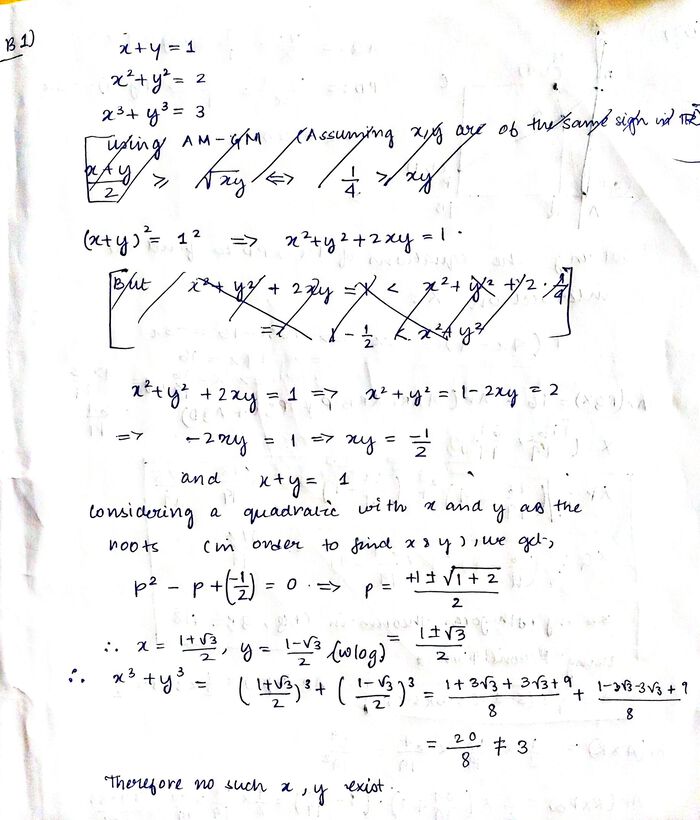 B1)
x + y = 1
x² + y² = 2
x³ + y³ = 3
using AM-GM (Assuming x, y are of the same sign in
x+y/2 ≥ √xy ⇔ 1/4 ≥ xy
(x+y)² = 1² => x² + y² + 2xy = 1.
But x² + y² + 2xy = 1 < x² + y² + 2 · 1/4
=> 1 - 1/2 < x² + y²
x² + y² + 2xy = 1 => x² + y² = 1 - 2xy = 2
=> -2xy = 1 => xy = -1/2
and x + y = 1
Considering a quadratic with x and y as the
roots (in order to find x & y), we get,
p² - p + (-1/2) = 0 => p = +1 ± √1+2 / 2
∴ x = 1+√3/2, y = 1-√3/2 (wlog) = 1±√3/2
∴ x³ + y³ = (1+√3/2)³ + (1-√3/2)³ = 1+3√3+3√3+9/8 + 1-3√3-3√3+9/8
= 20/8 ≠ 3
Therefore no such x, y exist.